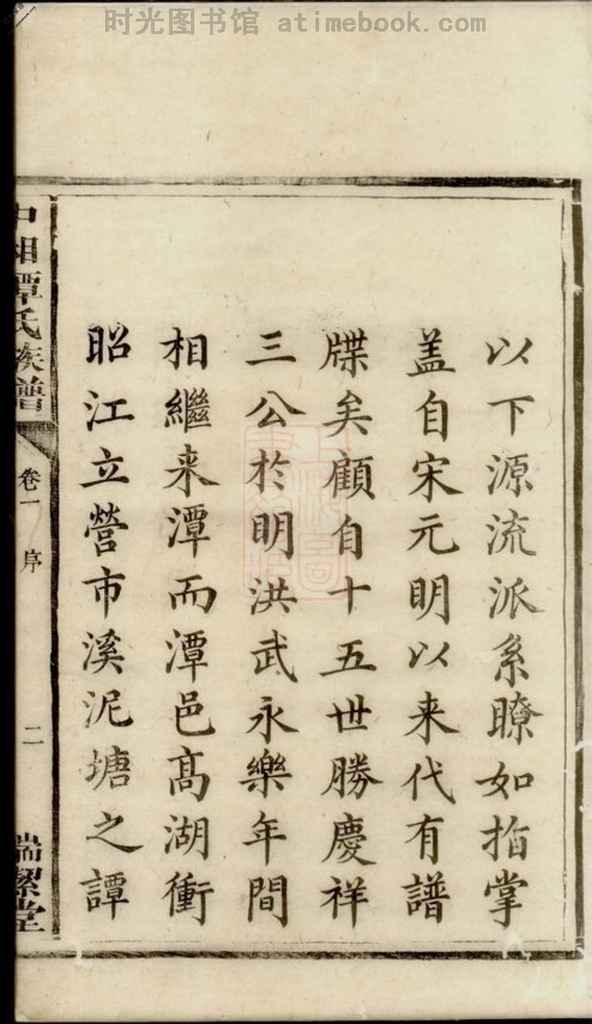 时光图书馆 atimebook.com
以下源流派系瞭如指掌
盖自宋元明以来代有譜
牒矣顧自十五世勝慶祥
三公於明洪武永樂年間
相繼来潭而潭邑髙湖衝
昭江立營市溪泥塘之譚
中湘譚氏族譜
卷一
序
二
堂